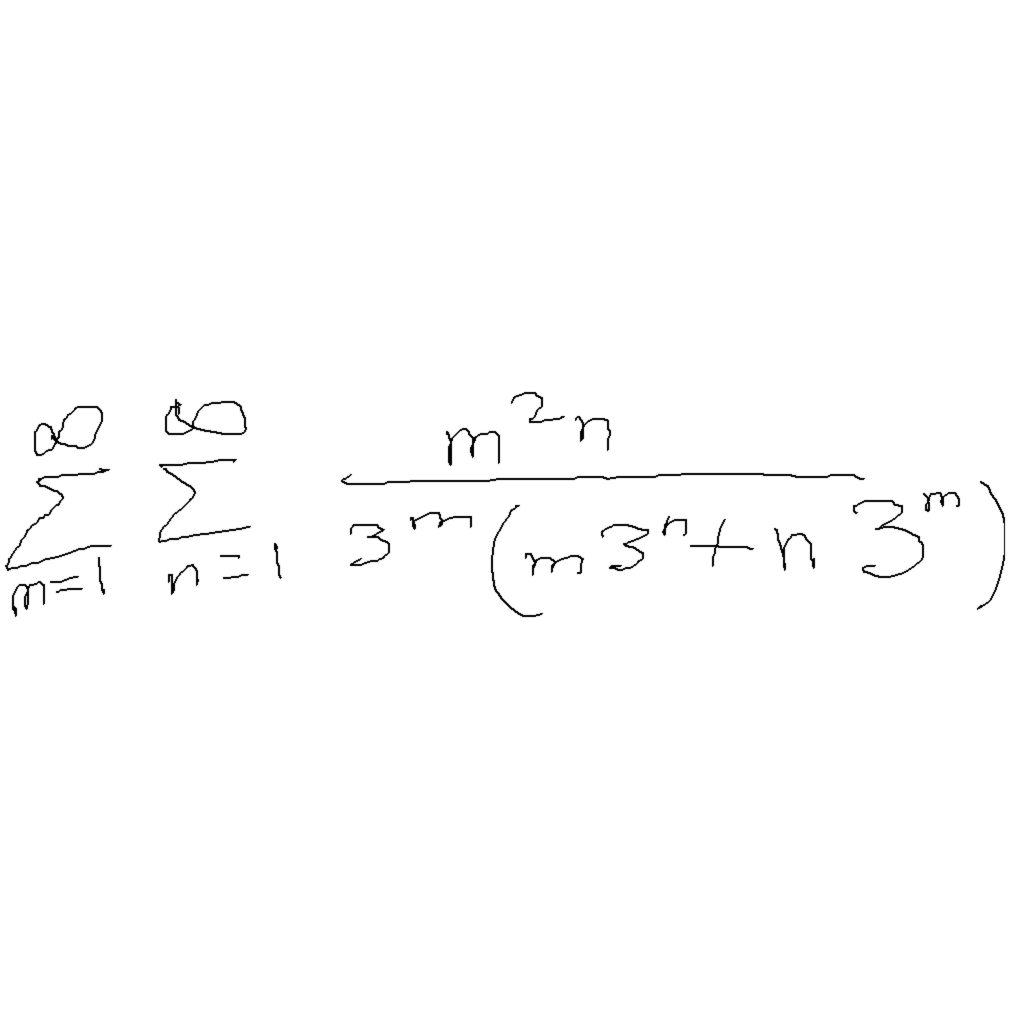 \sum_{m=1}^{\infty} \sum_{n=1}^{\infty} \frac{m^2 n}{3^m (m 3^n + n 3^m)}